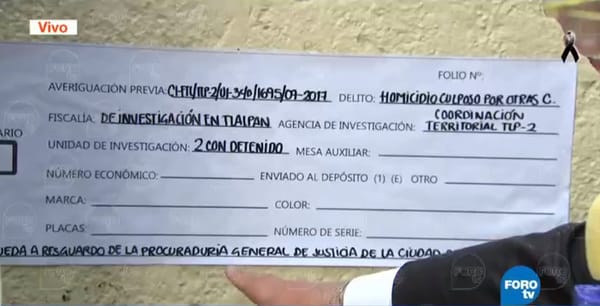 Vivo
FORO
tv
FOLIO Nº:
AVERIGUACIÓN PREVIA: CI-FTL/TLP-2/UI-3 /01695/09-2017 DELITO: HOMICIDIO CULPOSO POR OTRAS C.
FISCALÍA: DE INVESTIGACIÓN EN TLALPAN AGENCIA DE INVESTIGACIÓN: COORDINACIÓN
TERRITORIAL TLP-2
UNIDAD DE INVESTIGACIÓN: 2 CON DETENIDO MESA AUXILIAR:
NÚMERO ECONÓMICO: ENVIADO AL DEPÓSITO (1) (E) OTRO
MARCA: COLOR:
PLACAS: NÚMERO DE SERIE:
UEDA A RESGUARDO DE LA PROCURADURIA GENERAL DE JUSTICIA DE LA CIUDAD
ARIO
FORO
tv